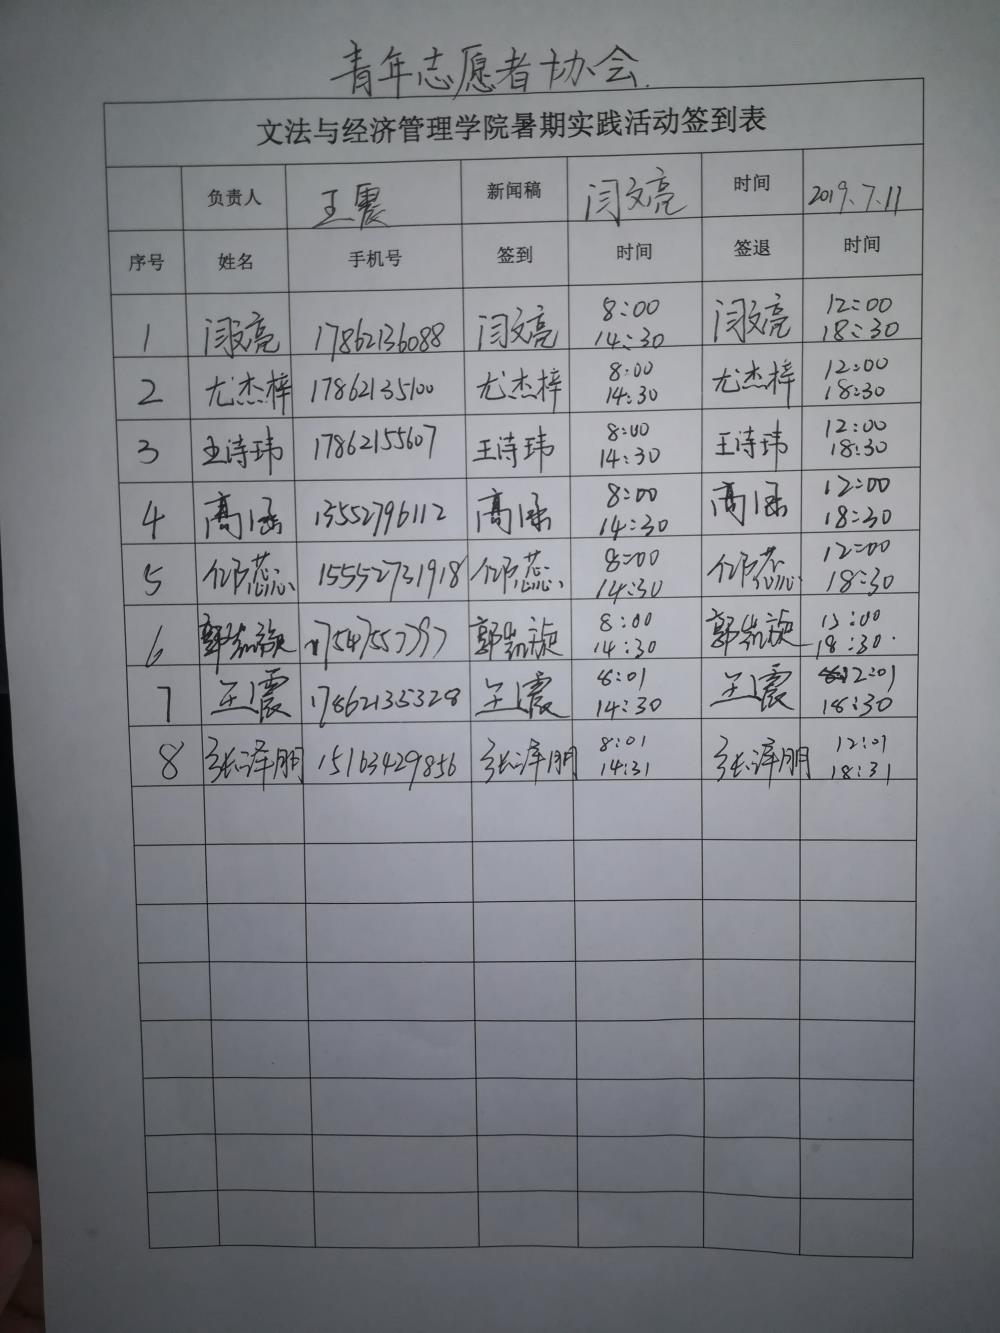 青年志愿者协会.
文法与经济管理学院暑期实践活动签到表
负责人 王震 新闻稿 闫文亮 时间 2019.7.11
序号 姓名 手机号 签到 时间 签退 时间
1 闫文亮 17862136088 闫文亮 8:00 14:30 闫文亮 12:00 18:30
2 尤杰梓 17862135100 尤杰梓 8:00 14:30 尤杰梓 12:00 18:30
3 王诗玮 17862155607 王诗玮 8:00 14:30 王诗玮 12:00 18:30
4 高涵 13552796112 高涵 8:00 14:30 高涵 12:00 18:30
5 邝蕊 15552731918 邝蕊 8:00 14:30 邝蕊 12:00 18:30
6 郭凯旋 郭凯旋 8:00 14:30 郭凯旋 18:30
7 王震 17862135328 王震 8:01 14:30 王震 12:01 18:30
8 张泽朋 15163429856 张泽朋 8:01 14:31 张泽朋 12:01 18:31